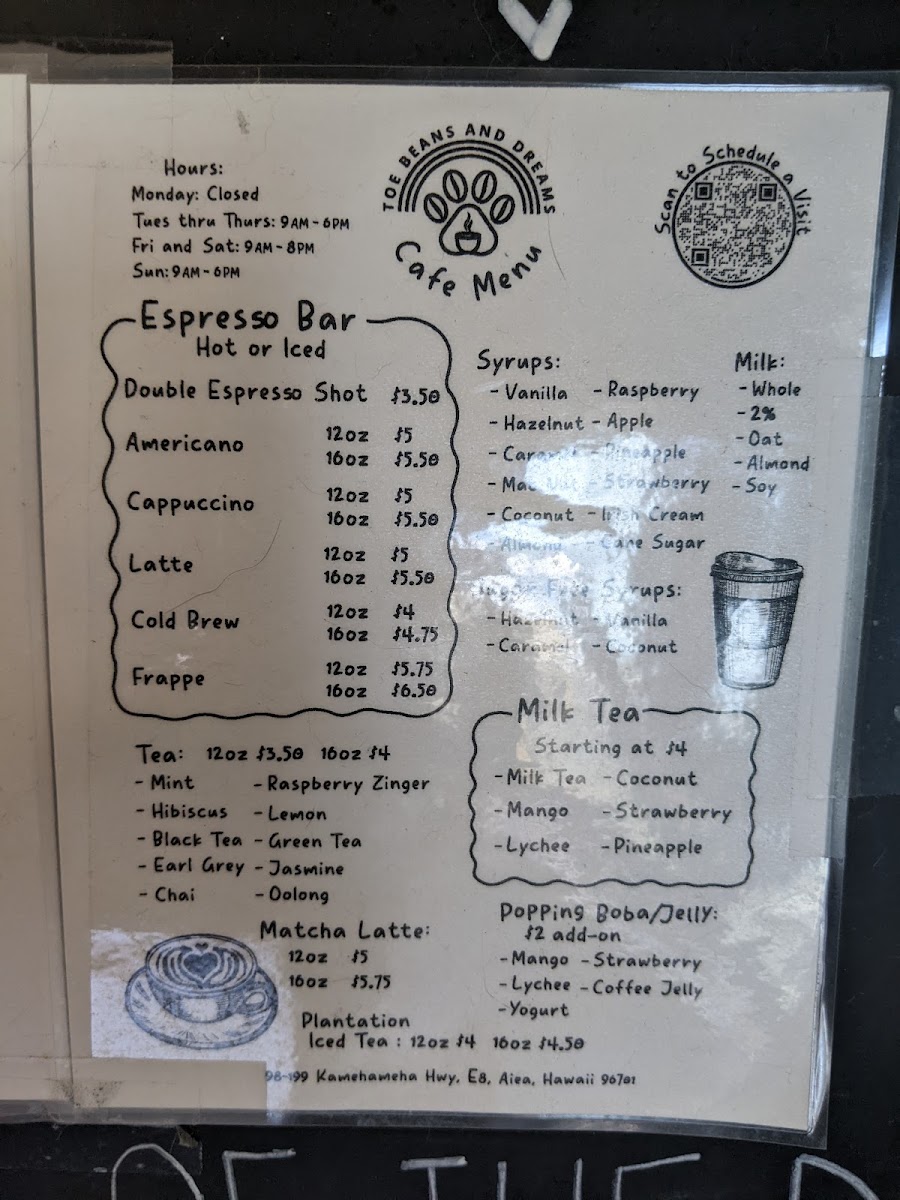 Hours:
Monday: Closed
Tues thru Thurs: 9AM - 6PM
Fri and Sat: 9AM - 8PM
Sun: 9AM - 6PM
TOE BEANS AND DREAMS
Cafe Menu
Scan to Schedule a Visit
Espresso Bar
Hot or Iced
Double Espresso Shot $3.50
Americano 12oz $5
16oz $5.50
Cappuccino 12oz $5
16oz $5.50
Latte 12oz $5
16oz $5.50
Cold Brew 12oz $4
16oz $4.75
Frappe 12oz $5.75
16oz $6.50
Syrups:
- Vanilla - Raspberry
- Hazelnut - Apple
- Caramel - Pineapple
- Mac Nut - Strawberry
- Coconut - Irish Cream
- Almond - Cane Sugar
Sugar Free Syrups:
- Hazelnut - Vanilla
- Caramel - Coconut
Milk:
- Whole
- 2%
- Oat
- Almond
- Soy
Tea: 12oz $3.50 16oz $4
- Mint - Raspberry Zinger
- Hibiscus - Lemon
- Black Tea - Green Tea
- Earl Grey - Jasmine
- Chai - Oolong
Milk Tea
Starting at $4
- Milk Tea - Coconut
- Mango - Strawberry
- Lychee - Pineapple
Matcha Latte:
12oz $5
16oz $5.75
Popping Boba/Jelly:
$2 add-on
- Mango - Strawberry
- Lychee - Coffee Jelly
- Yogurt
Plantation
Iced Tea : 12oz $4 16oz $4.50
98-199 Kamehameha Hwy, E8, Aiea, Hawaii 96701
OF THE